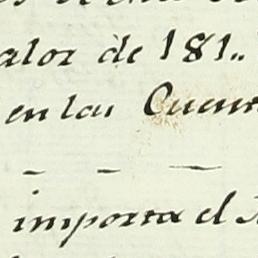 alor de 181..
en las Cuen
importa el